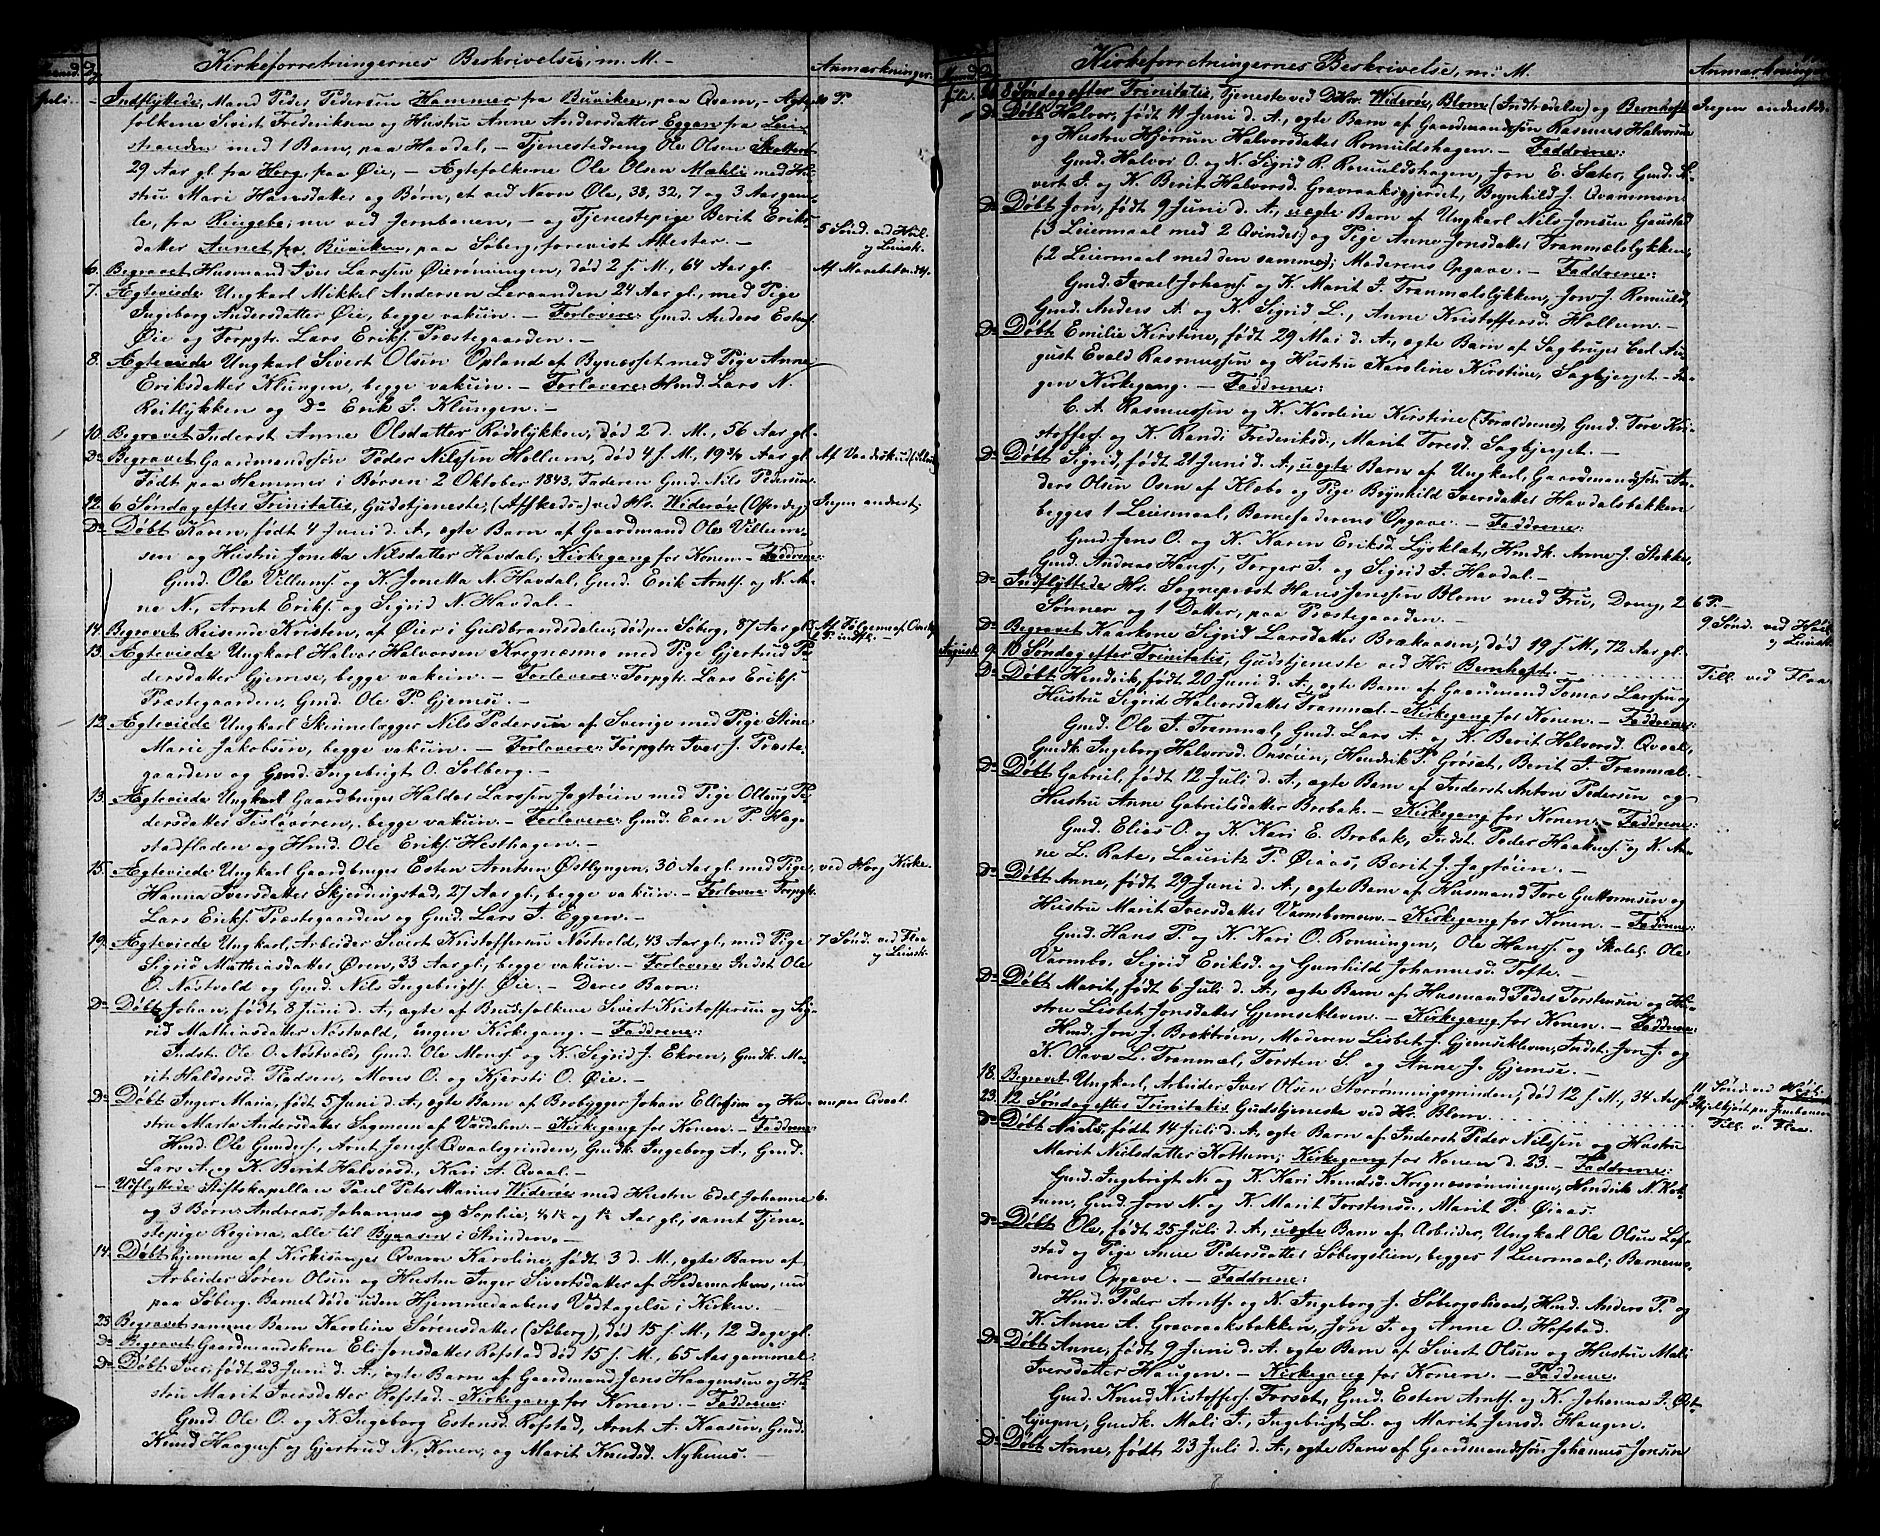 Kirkeforretningernes Beskrivelse, m. M. -
Anmærkninger.
Juli. - Indflyttede, Mand Peder Pedersen Hammer fra Buviken, paa Qvam, - Ægte-
folkene Sivert Frederiksen og Hustru Anne Andersdatter Eggen fra Lein-
stranden med 1 Barn, paa Havdal, - Tjenestedreng Ole Olsen
29 Aar gl. fra Horg, paa Øie, - Ægtefolkene Ole Olsen Mæhli med Hu-
stru Mari Hansdatter og Børn, et ved Navn Ole, 38, 32, 7 og 3 Aar gam-
le, fra Ringebo; nu ved Jernbanen, - og Tjenestepige Berit Eriks-
datter Aunet fra Buviken, paa Søberg, forevist Attester. -
5 Sønd. ved Høil.
og Leinstr.
6. Begravet Husmand Iver Larssen Øierønningen, død 2 f. M., 64 Aar gl.
7. Ægteviede Ungkarl Mikkel Andersen Leraanden 24 Aar gl., med Pige
Ingeborg Andersdatter Øie, begge vakcin. - Forlovere: Gmd. Anders Estens.
Øie og Forpgtr. Lars Eriks. Præstegaarden. -
8. Ægteviede Ungkarl Sivert Olsen Opland af Bynæsset med Pige Anne
Eriksdatter Klungen, begge vakcin. - Forlovere: Hmd. Lars N.
Reitlykken og Do Erik J. Klungen. -
10. Begravet Inderst Anne Olsdatter Rødslykken, død 2 d. M., 56 Aar gl.
Do Begravet Gaardmandssøn Peder Nilssen Hollum, død 4 f. M., 19 3/4 Aar gl.
Født paa Hammer i Børsen 2 Oktober 1843. Faderen Gmd. Nils Pedersen.
12. 6 Søndag efter Trinitatis, Gudstjeneste, (Afskeds-) ved Hr. Widerøe (Offerdag) Ingen andest.
Do Døbt Karen, født 4 Juni d. A., ægte Barn af Gaardmand Ole Villum-
sen og Hustru Jonetta Nilsdatter Havdal; Kirkegang for Konen. - Faddrene:
Gmd. Ole Villums. og K. Jonetta N. Havdal, Gmd. Erik Arnts. og K. An-
ne N., Arnt Eriks. og Sigrid N. Havdal. -
14. Begravet Reisende Kristen, af Øier i Guldbrandsdalen, død paa Søberg, 87 Aar gl.
13. Ægteviede Ungkarl Halvor Halvorsen Kregnæsmo med Pige Gjertrud Pe-
dersdatter Gjemse, begge vakcin. - Forlovere: Forpgtr. Lars Eriks.
Præstegaarden, Gmd. Ole P. Gjemse. -
12. Ægteviede Ungkarl Skinnelægger Nils Pedersen af Sverige med Pige Stine
Marie Jakobsen, begge vakcin. - Forlovere: Forpgtr. Iver J. Præste-
gaarden og Gmd. Ingebrigt O. Solberg. -
13. Ægteviede Ungkarl Gaardbruger Haldor Larssen Jagtøien med Pige Ollaug Pe-
dersdatter Tisløvøren, begge vakcin. - Forlovere: Gmd. Even P. Hage-
stadfladen og Hmd. Ole Eriks. Hesthagen. -
15. Ægteviede Ungkarl Gaardbruger Esten Arntsen Østlyngen, 30 Aar gl. med Pige ved Horg Kirke.
Hanna Iversdatter Skjerdingstad, 27 Aar gl., begge vakcin. - Forlovere Forpgtr.
Lars Eriks. Præstegaarden og Gmd. Lars I. Eggen. -
19. Ægteviede Ungkarl, Arbeider Sivert Kristoffersen Nøstvold, 43 Aar gl., med Pige 7 Sønd. ved Flaa
og Leinstr.
Sigrid Mathiasdatter Øren, 33 Aar gl., begge vakcin. - Forlovere: Indst. Ole
O. Nøstvold og Gmd. Nils Ingebrigts. Øie. - Deres Barn:
Do Døbt Johan, født 8 Juni d. A., ægte af Brudefolkene Sivert Kristoffersen og Sig-
rid Mathiasdatter Nøstvold, Ingen Kirkegang. - Faddrene:
Indst. Ole O. Nøstvold, Gmd. Ole Mons. og K. Sigrid J. Ekren, Gmdk. Ma-
rit Haldorsd. Pladsen, Mons O. og Kjersti O. Øie. -
Do Døbt Inger Maria, født 5 Juni d. A., ægte Barn af Brobygger Johan Ellefsen og Hu-
stru Marta Andersdatter Sagmoen af Værdalen. - Kirkegang for Konen. - Faddrene:
Hmd. Ole Gunders., Arnt Jens. Qvaalsgrinden, Gmdk. Ingeborg A., Gmd.
Lars A. og K. Berit Halvorsd., Kari A. Qvaal. -
- Udflyttede Stiftskapellan Paul Peter Marius Widerøe med Hustru Edel Johanne 6.
og 3 Børn: Andreas, Johannes og Sophie, Aar gl., samt Tjene-
stepige Regina, alle til Byaasen i Strinden. -
14. Døbt hjemme af Kirkesanger Qvam Karoline, født 3 d. M., ægte Barn af
Arbeider Søren Olsen og Hustru Inger Sivertsdatter af Hedemarken, nu
paa Søberg. Barnet døde uden Hjemmedaabens Vedtagelse i Kirken. -
23. Begravet samme Barn Karoline Sørensdatter (Søberg), død 15 f. M., 12 Dage gl.
Do Begravet Gaardmandskone Eli Jonsdatter Rofstad død 15 f. M., 65 Aar gammel
Do Døbt Iver, født 23 Juni d. A., ægte Barn af Gaardmand Jens Haagensen og Hu-
stru Marit Iversdatter Rofstad. - Kirkegang for Konen. - Faddrene:
Gmd. Ole O. og K. Ingeborg Estensd. Rofstad, Arnt A. Kaasen, Gmd.
Knud Haagens. og Gjertrud N. Konen, og Marit Knudsd. Nyhuus. -
Kirkeforretningernes Beskrivelse, m. M.
Anmærkninger
Juli. 8 Søndag efter Trinitatis, Tjeneste ved DHrr. Widerøe, Blom (Indtrædelse) og Bernhoft Ingen andesteds.
Do Døbt Halvor, født 11 Juni d. A., ægte Barn af Gaardmandssøn Rasmus Halvorsen
og Hustru Gjørrun Halvorsdatter Romuldshagen. - Faddrene:
Gmd. Halvor O. og K. Sigrid R. Romuldshagen, Jon E. Sæter, Gmd. Si-
vert I. og K. Berit Halvorsd. Gravraaksgjerret, Brynhild J. Qvammen.
Do Døbt Jon, født 9 Juni d. A., uægte Barn af Ungkarl Nils Jonsen Gaustad
(3 Leiermaal med 2 Qvinder) og Pige Anne Jonsdatter Tranmælslykken,
(2 Leiermaal med den samme); Moderens Opgave. - Faddrene:
Gmd. Israel Johans. og K. Marit I. Tranmælslykken, Jon J. Romuld,
Gmd. Anders A. og K. Sigrid L., Anne Kristoffersd. Hollum. -
Do Døbt Emilie Kirstine, født 29 Mai d. A., ægte Barn af Sagbruger Carl Au-
gust Evald Rasmussen og Hustru Karoline Kirstine, Sagbjerget. - In-
gen Kirkegang. - Faddrene:
C. A. Rasmussen og K. Karoline Kirstine (Forældrene), Gmd. Tore Kri-
stoffers. og K. Randi Frederiksd., Marit Toresd. Sagbjerget. -
Do Døbt Sigrid, født 21 Juni d. A., uægte Barn af Ungkarl, Gaardmandssøn An-
ders Olsen Osen af Klæbo og Pige Brynhild Iversdatter Havdalsbakken
begges 1 Leiermaal, Barnefaderens Opgave. - Faddrene:
Gmd. Jens O. og K. Karen Eriksd. Lysklæt, Hmdk. Anne J. Stokke,
Gmd. Andreas Hans., Torger I. og Sigrid I. Havdal. -
Do Indflyttede Hr. Sogneprest Hans Jenssen Blom med Fru, Dreng, 2 6 P. -
Sønner og 1 Datter, paa Præstegaarden. -
9 Sønd. ved Høil.
og Leinstr.
Do Begravet Kaarkone Sigrid Larsdatter Brækaasen, død 19 f. M., 72 Aar gl.
August 9. 10 Søndag efter Trinitatis, Gudstjeneste ved Hr. Bernhoft.
Till. ved Flaa
Do Døbt Hendrik, født 20 Juni d. A., ægte Barn af Gaardmand Tomas Larssen og
Hustru Sigrid Halvorsdatter Tranmæl. - Kirkegang for Konen. - Faddrene:
Gmd. Ole I. Tranmæl, Gmd. Lars A. og K. Berit Halvorsd. Qvaal,
Gmdk. Ingeborg Halvorsd. Onsøien, Hendrik P. Grøset, Berit I. Tranmæl. -
Do Døbt Gabriel, født 12 Juli d. A., ægte Barn af Inderst Anton Pedersen og
Hustru Anne Gabrielsdatter Brobak. - Kirkegang for Konen. - Faddrene:
Gmd. Elias O. og K. Kari E. Brobak, Indst. Peder Haakens. og K. An-
ne L. Rate, Laurits P. Øiaas, Berit J. Jagtøien. -
Do Døbt Anne, født 29 Juni d. A., ægte Barn af Husmand Tore Guttormsen og
Hustru Marit Iversdatter Varmbomoen. - Kirkegang for Konen. - Faddrene:
Gmd. Hans P. og K. Kari O. Rønningen, Ole Hans. og Skolel. Ole
Varmbo, Sigrid Eriksd. og Gunhild Johannesd. Tofte. -
Do Døbt Marit, født 6 Juli d. A., ægte Barn af Husmand Peder Torstensen og Hu-
stru Lisbet Jonsdatter Gjemsekleven. - Kirkegang for Konen. - Faddrene:
Hmd. Jon J. Brøktrøen, Moderen Lisbet J. Gjemsekleven, Indst. Jon J. og
K. Olava L. Tranmæl, Torsten S. og Anne J. Gjemse. -
18. Begravet Ungkarl, Arbeider Iver Olsen Storrønningsgrinden, død 12 f. M., 34 Aar gl.
23. 12 Søndag efter Trinitatis Gudstjeneste ved Hr. Blom
Till. v. Flaa.
Do Døbt Nils, født 14 Juli d. A., ægte Barn af Inderst Peder Nilssen og Hustru
Marit Nielsdatter Kottum; Kirkegang for Konen d. 23. - Faddrene:
Gmd. Ingebrigt N. og K. Kari Knudsd. Kregnæsrønningen, Hendrik N. Kot-
tum, Gmd. Jon N. og K. Marit Torstensd., Marit P. Øiaas.
Do Døbt Ole, født 25 Juli d. A., uægte Barn af Arbeider, Ungkarl Ole Olsen Lef-
stad og Pige Anne Pedersdatter Søbergslien, begges 1 Leiermaal; Barnemo-
derens Opgave. - Faddrene:
Hmd. Peder Arnts. og K. Ingeborg J. Søbergshovet, Hmd. Anders P. og
K. Anne A. Gravraaksbakken, Jon I. og Anne O. Hofstad.
Do Døbt Anne, født 9 Juni d. A., ægte Barn af Sivert Olsen og Hustru Mali
Iversdatter Haugen. - Kirkegang for Konen. - Faddrene:
Gmd. Knud Kristoffers. Forset, Gmd. Esten Arnts. og K. Johanna P. Øst-
lyngen, Gmdk. Mali I., Ingebrigt L. og Marit Jensd. Haugen.
Do Døbt Anne, født 23 Juli d. A., ægte Barn af Gaardmandssøn Johannes Jonsen